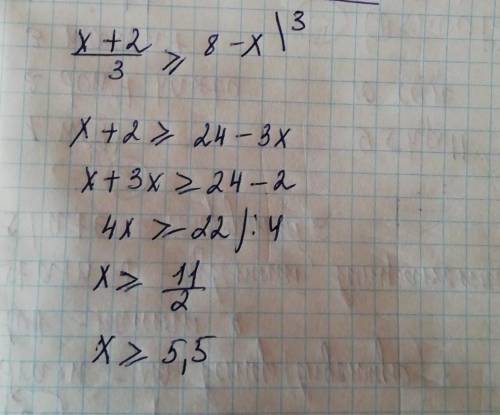 x + 2 / 3 ≥ 8 - x \ 3
x + 2 ≥ 24 - 3x
x + 3x ≥ 24 - 2
4x ≥ 22 / : 4
x ≥ 11 / 2
x ≥ 5,5